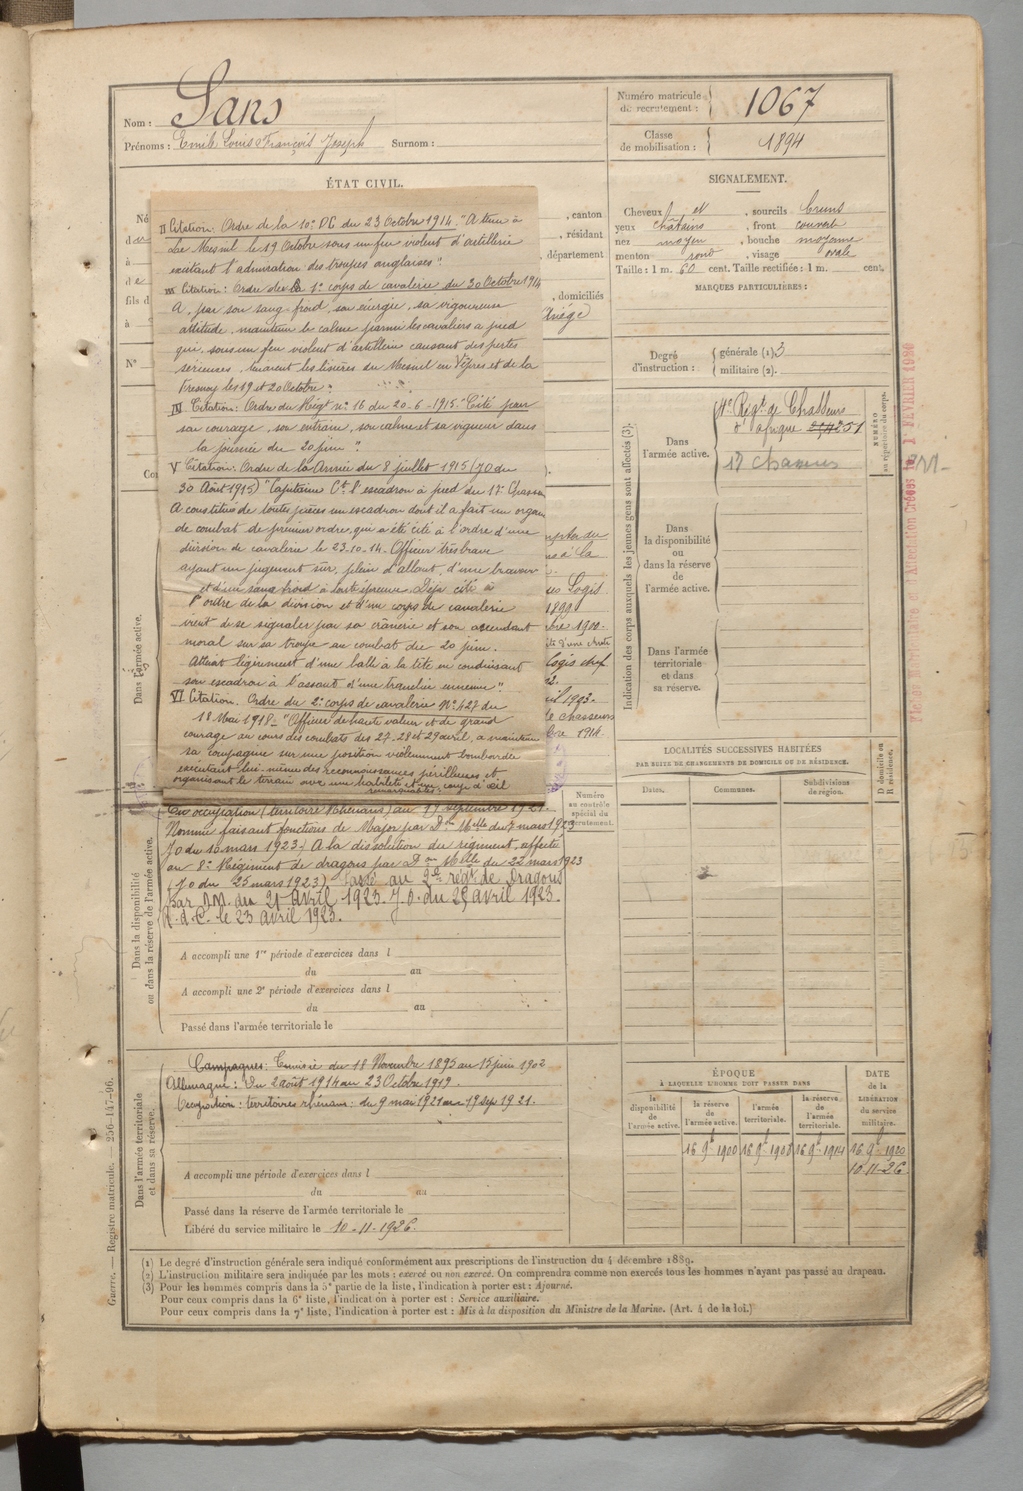 Nom : Sans
Prénoms : Emile Louis François Joseph Surnom :
Numéro matricule de recrutement : 1067
Classe de mobilisation : 1894
ÉTAT CIVIL.
, canton
, résidant
, département
, domiciliés
Ariège)
II Citation. Ordre de la 10e DC du 23 Octobre 1914. "A tenu à
Le Mesnil le 19 Octobre sous un feu violent d'artillerie
excitant l'admiration des troupes anglaises".
III Citation : Ordre de la 1e corps de cavalerie du 30 Octobre 1914
A, par son sang-froid, son énergie, sa vigoureuse
attitude, maintenu le calme parmi les cavaliers à pied
qui, sous un feu violent d'artillerie causant des pertes
sérieuses, tenaient les lisières du Mesnil en Vêpres et de la
Fresnoy les 19 et 20 Octobre.
IV Citation : Ordre du Régt n° 16 du 20-6-1915. "Cité pour
son courage, son entrain, son calme et sa vigueur dans
la journée du 20 juin".
V Citation : Ordre de la Armée du 8 juillet 1915 (JO du
30 Août 1915) "Capitaine Ct l'escadron à pied du 17e Chasseurs
A constitué de toutes pièces un escadron dont il a fait un organe
de combat de premier ordre, qui a été cité à l'ordre d'une
division de cavalerie le 23-10-14. Officier très brave
ayant un jugement sûr, plein d'allant, d'une bravoure
et d'un sang froid à toute épreuve. Déjà cité à
l'ordre de la division et d'un corps de cavalerie
vient de se signaler par sa crânerie et son ascendant
moral sur sa troupe au combat du 20 juin.
Atteint légèrement d'une balle à la tête en conduisant
son escadron à l'assaut d'une tranchée ennemie".
VI Citation. Ordre du 2e corps de cavalerie N° 427 du
18 Mai 1918 - "Officier de haute valeur et de grand
courage au cours des combats des 27-28 et 29 avril, a maintenu
sa compagnie sur une position violemment bombardée
exécutant lui-même des reconnaissances périlleuses et
organisant le terrain avec une habileté et un coup d'œil
remarquables."
Logis
1899
1900.
Logis chef
1903.
de chasseurs
1914.
En occupation (territoire Rhénans) au 19 septembre 1921.
Nommé faisant fonctions de Major par Don Mlle du 7 mars 1923
JO du 10 mars 1923) A la dissolution du régiment, affecté
au 8e Régiment de dragons par Don Mlle du 22 mars 1923
(Jo du 25 mars 1923) Passé au 2e régt de Dragons
par D.M. du 21 Avril 1923. J.O. du 25 avril 1923.
R.d.C. le 23 avril 1923.
A accompli une 1re période d'exercices dans l
du au
A accompli une 2e période d'exercices dans l
du au
Passé dans l'armée territoriale le
Campagnes : Tunisie du 18 Novembre 1895 au 15 juin 1902
Allemagne : Du 2 août 1914 au 23 Octobre 1919.
Occupation : territoires rhénans : du 9 mai 1921 au 19 sep 1921.
A accompli une période d'exercices dans l
du au
Passé dans la réserve de l'armée territoriale le
Libéré du service militaire le 10-11-1926.
Dans l'armée active.
Dans la disponibilité
ou dans la réserve de l'armée active.
Dans l'armée territoriale
et dans sa réserve.
Numéro
au contrôle
spécial du
recrutement.
SIGNALEMENT.
Cheveux et , sourcils bruns
yeux châtains , front couvert
nez moyen , bouche moyenne
menton rond , visage ovale
Taille : 1 m. 60 cent. Taille rectifiée : 1 m. cent.
MARQUES PARTICULIÈRES :
Degré d'instruction : générale (1) 3
militaire (2).
Indication des corps auxquels les jeunes gens sont affectés (3).
Dans
l'armée active.
4e Régt de Chasseurs
d'afrique 251
17 Chasseurs
NUMÉRO
au répertoire du corps.
Dans
la disponibilité
ou
dans la réserve
de
l'armée active.
Dans l'armée
territoriale
et dans
sa réserve.
LOCALITÉS SUCCESSIVES HABITÉES
PAR SUITE DE CHANGEMENTS DE DOMICILE OU DE RÉSIDENCE.
Dates. Communes. Subdivisions de région.
D domicile ou
R résidence.
ÉPOQUE
À LAQUELLE L'HOMME DOIT PASSER DANS
la disponibilité de l'armée active.
la réserve de l'armée active.
l'armée territoriale.
la réserve de l'armée territoriale.
DATE
de la
LIBÉRATION
du service
militaire.
16 9bre 1900 16 9bre 1908 16 9bre 1914 16 9bre 1920
10-11-26
(1) Le degré d'instruction générale sera indiqué conformément aux prescriptions de l'instruction du 4 décembre 1889.
(2) L'instruction militaire sera indiquée par les mots : exercé ou non exercé. On comprendra comme non exercés tous les hommes n'ayant pas passé au drapeau.
(3) Pour les hommes compris dans la 5e partie de la liste, l'indication à porter est : Ajourné.
Pour ceux compris dans la 6e liste, l'indication à porter est : Service auxiliaire.
Pour ceux compris dans la 7e liste, l'indication à porter est : Mis à la disposition du Ministre de la Marine. (Art. 4 de la loi.)
Guerre. — Registre matricule. — 256-147-96.